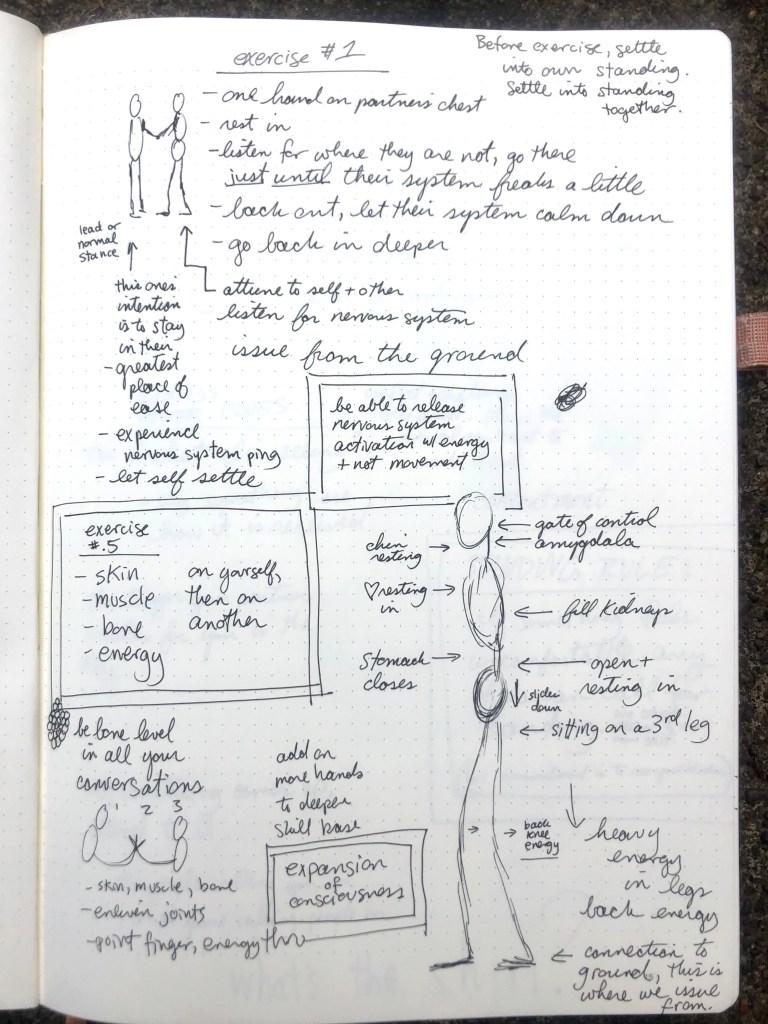 exercise #1
Before exercise, settle
into own standing.
Settle into standing
together.
- one hand on partner's chest
- rest in
- listen for where they are not, go there
just until their system freaks a little
- back out, let their system calm down
- go back in deeper
lead or
normal
stance
this ones
intention
is to stay
in their
- greatest
place of
ease
- experience
nervous system ping
- let self settle
attune to self + other
listen for nervous system
issue from the ground
be able to release
nervous system
activation w/ energy
+ not movement
exercise
#.5
- skin
- muscle
- bone
- energy
on yourself,
then on
another
gate of control
amygdala
chin
resting
♡ resting
in
fill kidneys
stomach
closes
open +
resting in
slides
down
sitting on a 3rd leg
back
knee
energy
heavy
energy
in legs
back energy
connection to
ground, this is
where we issue
from.
be bone level
in all your
conversations
1 2 3
- skin, muscle, bone
- enliven joints
- point finger, energy thru
add on
more hands
to deepen
skill base
expansion
of
consciousness